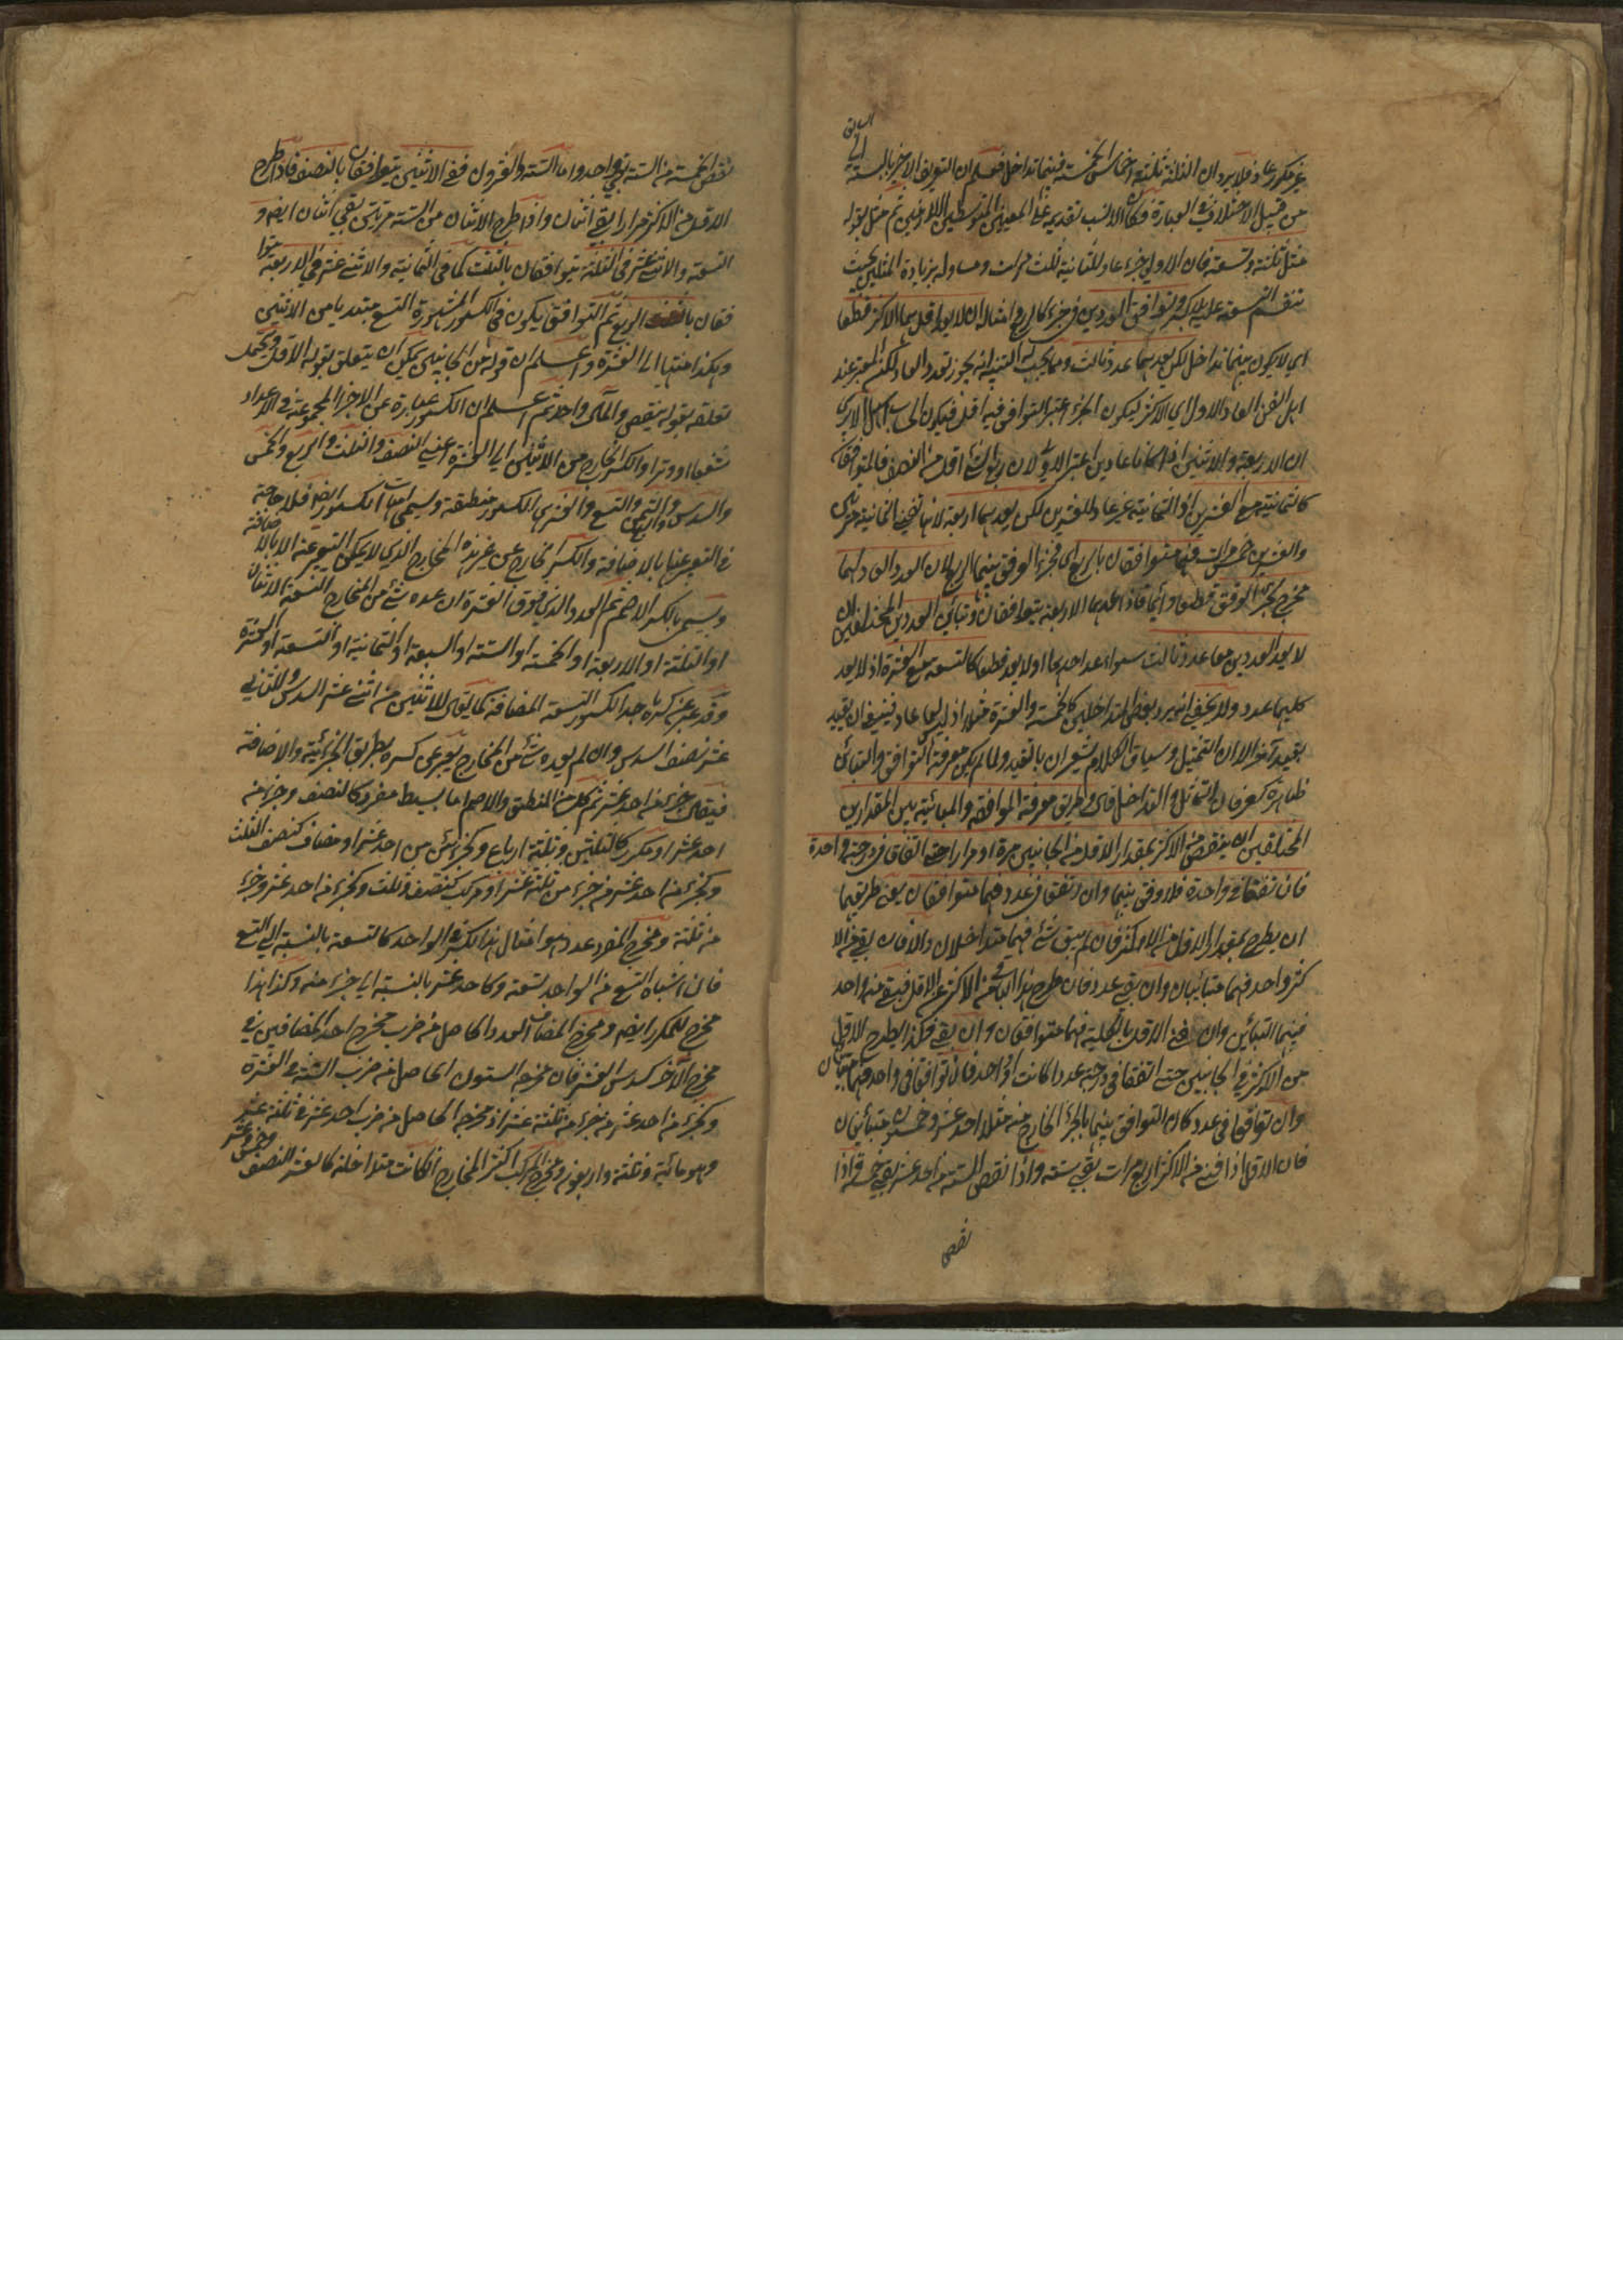 غير مكرر عاد فلا يرد ان الثلثة ثلثة اخماس الخمسة فبينهما تداخل فعلم ان التعريف الاخير بالنسبة الى السابق
من قبيل الاختلاف في العبارة فكان الانسب تقديمه على المعنيين المتوسطين اللازمين ثم مثل بقوله
مثل ثلثة وتسعة فان الاولى جزء عاد للثانية ثلث مرات ومساو له بزيادة المثلين بحيث
تنقسم التسعة عليها بلا كسر وتوافق العددين في جزء كالربع وامثاله ان لا يعد اقلهما الاكثر قطعا
اى لا يكون بينهما تداخل لكن يعدهما عدد ثالث ومما يجب له التنبه انه يجوز تعدد العاد لكن المعتبر عند
اهل الفن العاد الاول اى الاكثر ليكون الجزء المعتبر التوافق فيه اقل فيكون الحساب اسهل الا يرى
ان الاربعة والاثنين اذا كانا عادين اعتبر الاول لان ربع الشئ اقل من النصف فالمتوافقان
كالثمانية مع العشرين اذ الثمانية غير عاد للعشرين لكن يعدهما اربعة لانها تفنى الثمانية مرتين
والعشرين خمس مرات فهما متوافقان بالربع اى فجزء الوفق بينهما الربع لان العدد العاد لهما
مخرج لجزء الوفق قطعا وانما اذا عدهما الاربعة يتوافقان وتباين العددين المختلفين ان
لا يعد العددين معا عدد ثالث سواء عد احدهما اولا يعد قطعا كالتسعة مع العشرة اذ لا يعد
كليهما عدد ولا يخفى انه يرد بعض المتداخلين كالخمسة والعشرة مثلا اذ ليس لهما عاد فينبغى ان يقيد
بقيد آخر الا ان التمثيل وسياق الكلام يشعران بالقيد ولما لم يكن معرفة التوافق والتباين
ظاهرة كعرفان التماثل والتداخل قال وطريق معرفة الموافقة والمباينة بين المقدارين
المختلفين ان ينقص من الاكثر بمقدار الاقل من الجانبين مرة او مرارا حتى اتفقا في درجة واحدة
فان تفقا في واحدة فلا وفق بينهما وان اتفقا في عدد فهما متوافقان يعنى طريقهما
ان يطرح بمقدار الاقل من الاكثر فان لم يبق شئ فهما متداخلان والا فان بقى من الا
كثر واحد فهما متباينان وان بقى عدد فان طرح هذا الباقى من الاقل فبقى منه واحد
فبينهما التباين وان فنى الاقل بالكلية فهما متوافقان وان بقى فكذا يطرح الاقل
من الاكثر في الجانبين حتى اتفقا في درجة عددا كانت او واحد فان توافقا في واحد فهما متباينان
وان توافقا في عدد كان التوافق بينهما بالجزء الخارج منه مثلا احد عشر وخمسون متباينان
فان الاقل اذا فنى من الاكثر اربع مرات بقى ستة واذا نقص الستة من احد عشر بقى خمسة فاذا
نقص
نقص الخمسة من الستة بقى واحد واما الستة والعشرون ففى الاثنين يتوافقان بالنصف فاذا طرح
الاقل من الاكثر مرارا بقى اثنان واذا طرح الاثنان من الستة مرتين بقى اثنان ايضا و
التسعة والاثنى عشر فى الثلثة يتوافقان بالثلث كما فى الثمانية والاثنى عشر فى الاربعة يتوا
فقان بالربع ثم التوافق يكون فى الكسور المشهورة التسع مبتديا من الاثنين
وهكذا منتهيا الى العشرة واعلم ان قوله من الجانبين يمكن ان يتعلق بقوله الاقل ويحتمل
تعلقه بقوله ينقص والمآل واحد ثم اعلم ان الكسور عبارة عن الاجزاء المجموعة فى الاعداد
شفعا او وترا والكسر الخارج من الاثنين الى العشرة اعنى النصف والثلث والربع والخمس
والسدس والسبع والثمن والتسع والعشر هى الكسور منطقة ويسمى امهات الكسور ايضا فلا حاجة
فى التعبير عنها بالاضافة والكسر الخارج عن غير هذه المخارج الذى لا يمكن التعبير عنه الا بالاضافة
ويسمى بالكسر الاصم ثم العدد الذى فوق العشرة ان عده شئ من المخارج التسعة الاثنان
او الثلثة او الاربعة او الخمسة او الستة او السبعة او الثمانية او التسعة او العشرة
وقد عبر عن كسره باحد الكسور التسعة المضافة كما يقال للاثنين من اثنى عشر السدس وللثانى
عشر نصف السدس وان لم يعده شئ من المخارج يعبر عن كسره بطريق الجزئية والاضافة
فيقال جزء من احد عشر ثم كل من المنطق والاصم اما بسيط مفرد كالنصف وجزء من
احد عشر او مكرر كالثلثين وثلثة ارباع وكجزئين من احد عشر او مضاف كنصف الثلث
وكجزء من احد عشر من جزء من ثلثة عشر او مركب كنصف وثلث وكجزء من احد عشر وجزء
من ثلثة ومخرج المفرد عدد هو امثال هذا الكسر الواحد كالتسعة بالنسبة الى التسع
فان اشباه التسع من الواحد تسعة وكاحد عشر بالنسبة الى جزء منه وكذا هذا
مخرج للمكرر ايضا ومخرج المضاف العدد الحاصل من ضرب مخرج احد المضافين فى
مخرج الآخر كسدس العشر فان مخرجه الستون الحاصل من ضرب الستة فى العشرة
وكجزء من احد عشر من جزء من ثلثة عشر اذ مخرجه الحاصل من ضرب احد عشر فى ثلثة عشر
وهو مائة وثلثة واربعون ومخرج المركب اكثر المخارج ان كانت متداخلة كالعشر والنصف